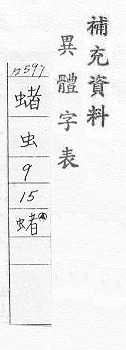 補充資料
異體字表
蝫
虫
9
15
蝫